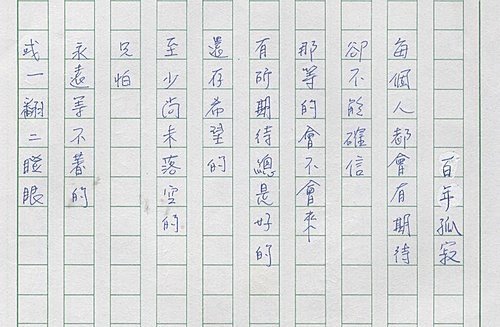 百年孤寂
每個人都會有期待
卻不能確信
那等的會不會來
有所期待總是好的
還存希望的
至少尚未落空的
只怕
永遠等不著的
或一翻二瞪眼